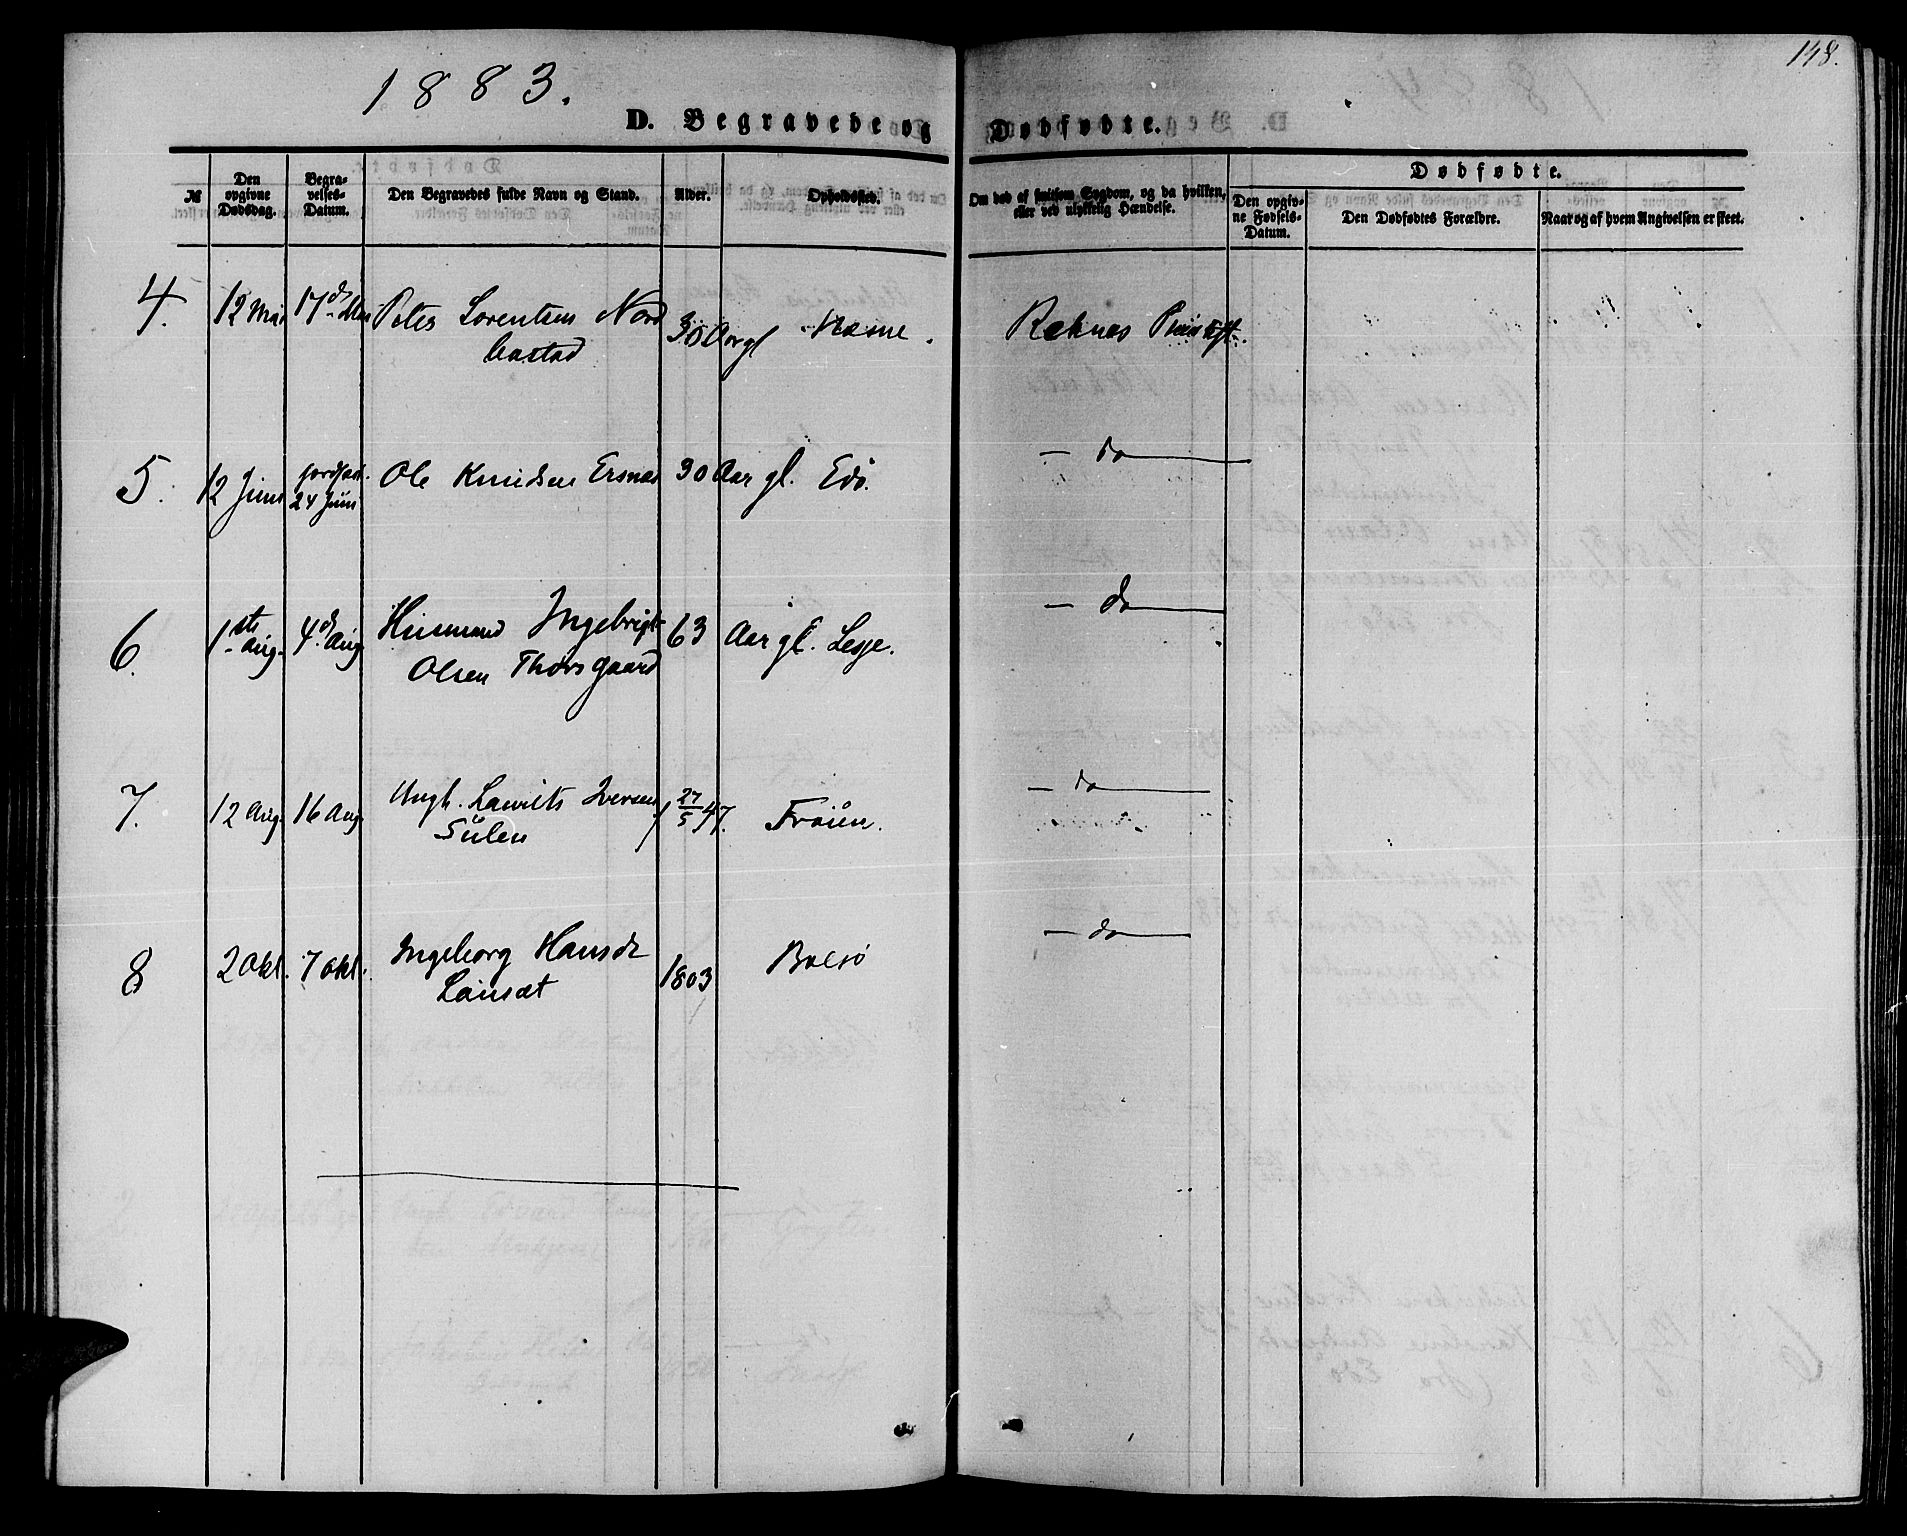 1883.
148.
D. Begravede og Dødfødte.
№
Den opgivne Dødsdag.
Begravelses-Datum.
Den Begravedes fulde Navn og Stand.
Alder.
Opholdssted.
Om død af smitsom Sygdom, og da hvilken, eller ved ulykkelig Hændelse.
Dødfødte.
Den opgivne Fødsels-Datum.
Den Dødfødtes Forældre.
Naar og af hvem Angivelsen er skeet.
4. 12 Mai 17de Mai Peter Lorentsen Nord 30 Aar gl Reknæs
bastad
5. 12 Juni jordfæst. Ole Knudsen 30 Aar gl. Edø. — do —
24 Juni
6. 1ste Aug. 4de Aug. Husmand Ingebrigt 63 Aar gl. Lesje. — do —
Olsen Thorsgaard
7. 12 Aug. 16 Aug. Ungk. Laurits Iversen 27/5 47. Frøien. — do —
Sulen
8 2 Okt. 7 Okt. Ingeborg Hansdt 1803 Bolsø — do —
Lønsæt